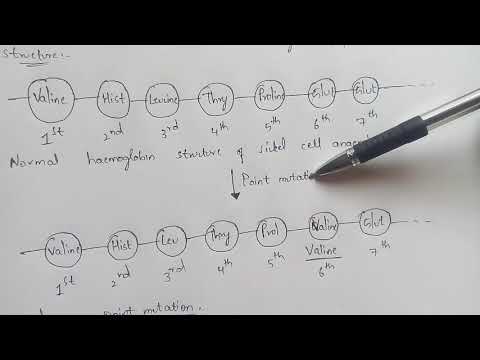 structure:-
Valine Hist Levine Thry Proline Glut Glut
1st 2nd 3rd 4th 5th 6th 7th
Normal haemoglobin struture of sickel cell
Point mutation
Valine Hist Lev Thry Prol Valine Glut
1st 2nd 3rd 4th 5th Valine 7th
6th
point mutation.